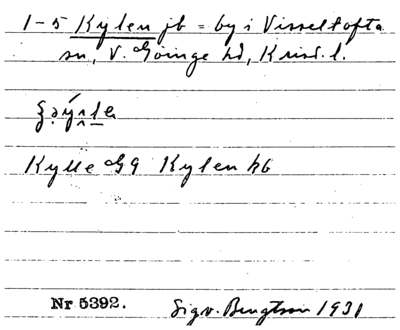 1-5 Kylen jb = by i Visseltofta
sn, V. Göinge hd, Krist. l.
Kylle GG Kylen hb
Nr 5392.
Sigv. Bengtson 1931